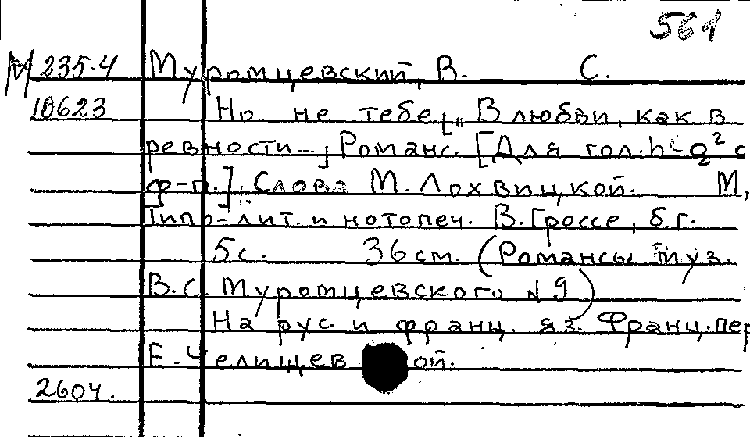 561
М 235.4 Муромцевский, В. С.
10623 Но не тебе „В любви, как в
ревности-„ Романс. [Для гол. h-g² с
ф-п.]. Слова М. Лохвицкой. М,
Типо-лит и нотопеч. В. Гроссе, б.г.
5с. 36 см. (Романсы муз.
В.С. Муромцевского №9)
На рус. и франц. яз. Франц. пер
Е. Челищев ой.
2604.